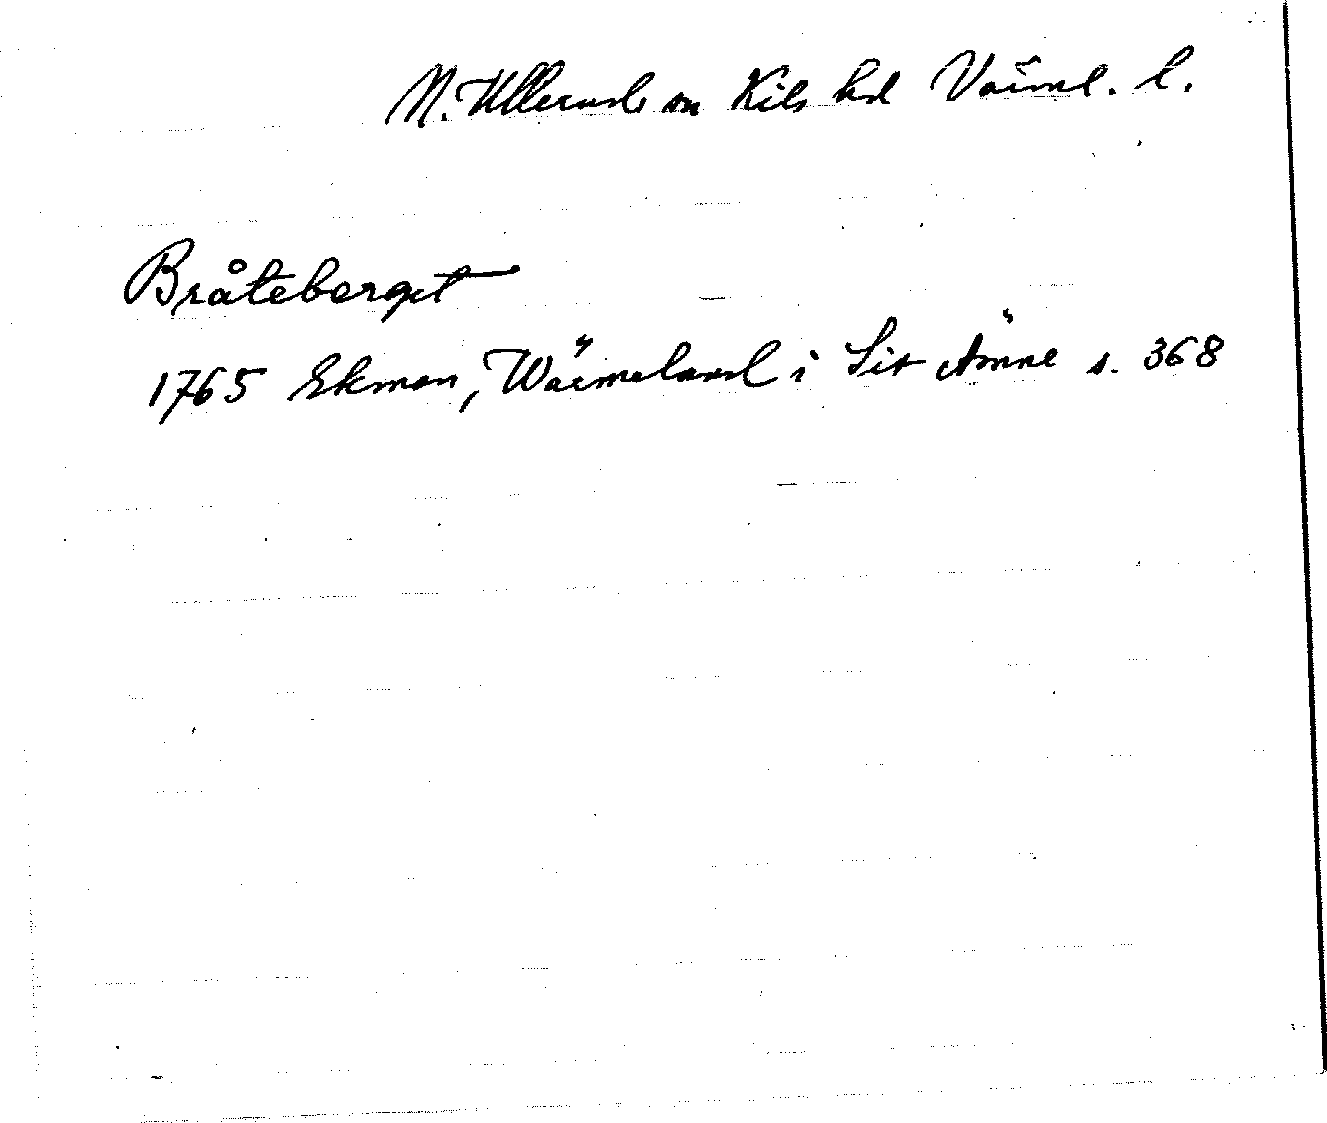 N. Ullerud sn Kils hd Värml. l.
Bråteberget
1765 Ekman, Wärmeland i Sit Ämne s. 368